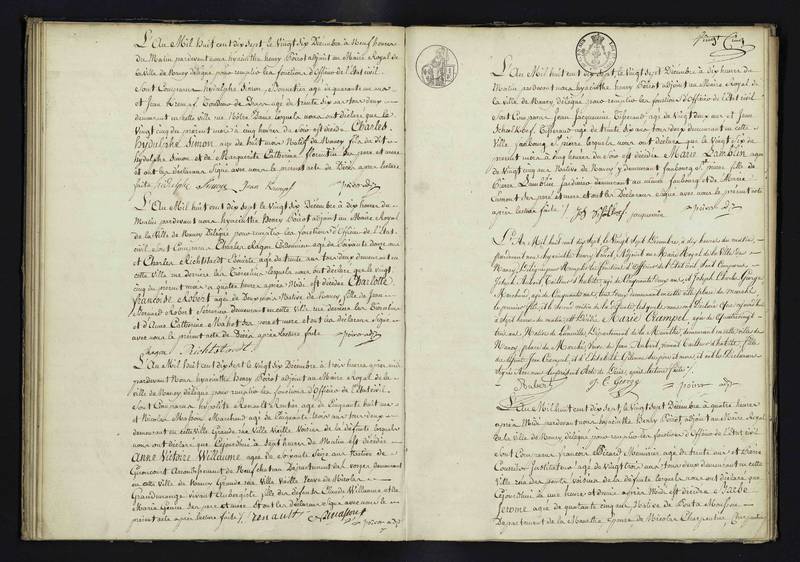 L'An Mil huit cent dix sept, le Vingt Six Décembre à Neuf heures
du Matin pardevant nous hyacinthe henry Poirot adjoint au Maire Royal de
la Ville de Nancy délégué pour remplir les fonctions d'Officier de l'Etat civil.
Sont Comparus hydulphe Simon, Bonnetier agé de quarante un ans
et Jean Kempf Cordonnier de Paris agé de trente six ans tous deux
demeurant en cette ville rue Notre Dame lesquels nous ont déclaré que le
Vingt cinq du présent mois à cinq heures du soir est décédé Charles
hydulphe Simon agé de huit mois Natif de Nancy fils du dit
hydulphe Simon et de Marguerite Catherine florentin ses pere et mere
et ont les déclarans Signé avec nous le présent acte de Décès après lecture
faite hidulphe Simon Jean Kempf poirot adj
L'An Mil huit cent dix sept le Vingt six Décembre à dix heures du
Matin pardevant nous hyacinthe Henry Poirot adjoint au Maire Royal
de la Ville de Nancy Délégué pour remplir les fonctions d'Officier de l'Etat
civil. Sont Comparus Charles Cordonnier agé de Soixante douze ans
et Charles Richtstedt agé de trente ans tous deux demeurant en
cette Ville rue derriere lesquels nous ont déclaré que le vingt
cinq du présent mois a quatre heures après Midi est décédée Charlotte
françoise Robert agée de Native de Nancy fille de Jean
Bernard Robert Serrurier demeurant en cette Ville rue derriere
et d'Anne Catherine Mahot ses pere et mere et ont les déclarans Signé
avec nous le présent acte de Décès après lecture faite poirot adj
Richtstedt
L'An Mil huit cent dix sept le Vingt six Décembre à trois heures après midi
pardevant Nous hyacinthe Henry Poirot adjoint au Maire Royal de la
Ville de Nancy Délégué pour remplir les fonctions d'Officier de l'Etat civil.
Sont Comparus hypolite Renault Rentier agé de Cinquante huit ans
et Nicolas Masson Marchand agé de Cinquante trois ans tous deux
demeurant en cette Ville Grande rue Ville Vieille Voisins de la défunte lesquels
nous ont déclaré que Cejourd'hui à Sept heures du Matin est décédée
Anne Victoire Willaume agée de Soixante Seize ans Native de
Gironcourt Arrondissement de Neufchateau Département des Vosges demeurant
en cette Ville de Nancy Grande rue Ville Vieille Veuve de Nicolas
Grandmange vivant Aubergiste fille des défunts Claude Willaume et de
Marie ses pere et mere. et ont les déclarans Signé avec nous le
présent acte après lecture faite renault N masson
poirot adj
Vingt Cinq
L'An Mil huit cent dix sept, le Vingt sept Décembre à dix heures du
Matin pardevant nous hyacinthe henry Poirot adjoint au Maire Royal de
la Ville de Nancy délégué pour remplir les fonctions d'Officier de l'Etat civil
Sont Comparus Jean Jacquemine Tisserand agé de Vingt deux ans et Jean
Tisserand agé de trente six ans tous deux demeurant en cette
Ville faubourg St pierre lesquels nous ont déclaré que le Vingt six du
présent mois à cinq heures du soir est décédée Marie Lamblin agée
de Vingt cinq ans Native de Nancy y demeurant faubourg St pierre fille de
Pierre Lamblin Jardinier demeurant au même faubourg et de Marie
Cument ses pere et mere et ont les Déclarans Signé avec nous le présent acte
après lecture faite jacquemine poirot adj
L'An Mil huit cent dix sept, le Vingt sept Décembre, à dix heures du matin,
pardevant nous hyacinthe henry Poirot, Adjoint au Maire Royal de la Ville de
Nancy, Délégué pour Remplir les fonctions d'Officier de l'Etat civil, Sont Comparus
Joseph Aubert Tailleur d'habits, agé de Cinquante ans, et Joseph Charles George
Marchand, agé de Cinquante ans, tous deux demeurant en cette ville place du marché
le premier fils, et le second voisin de la défunte, lesquels nous ont Déclaré que
à Sept heures du matin, est Décédée Marie Crampel, agée de Quatre vingt
ans, Native de Lunéville, Département de la Meurthe, demeurant en cette ville de
Nancy, place du Marché, Veuve de Jean Aubert, vivant Tailleur d'habits, fille
de défunts Jean Crampel, et d' ses pere et mere, et ont les Déclarans
Signé Avec nous le présent Acte de Décès, après lecture faite.
Aubert J. C. George poirot adj
L'An Mil huit cent dix sept, le Vingt sept Décembre à quatre heures
après Midi pardevant nous hyacinthe henry Poirot adjoint au Maire Royal
de la Ville de Nancy délégué pour remplir les fonctions d'Officier de l'Etat civil.
Sont Comparus françois Menuisier agé de trente ans et Pierre
Instituteur agé de Vingt trois ans tous deux demeurant en cette
Ville rue des ponts voisins de la défunte lesquels nous ont déclaré que
Cejourd'hui à une heure et demie après Midi est décédée Barbe
Jerome agée de quarante cinq ans Native de Ponta Mousson
Département de la Meurthe Epouse de Nicolas Charpentier Charpentier